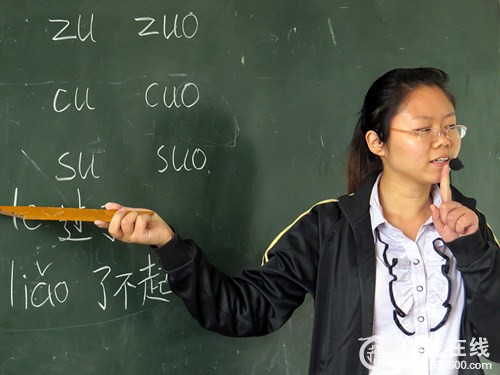 zu zuo
cu cuo
su suo
le
liǎo 了不起
在线
500.com